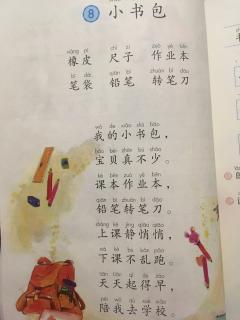 8 小书包
xiàng pí chǐ zi zuò yè běn
橡皮 尺子 作业本
bǐ dài qiān bǐ zhuàn bǐ dāo
笔袋 铅笔 转笔刀
wǒ de xiǎo shū bāo
我的小书包，
bǎo bèi zhēn bù shǎo
宝贝真不少。
kè běn zuò yè běn
课本作业本，
qiān bǐ zhuàn bǐ dāo
铅笔转笔刀。
shàng kè jìng qiāo qiāo
上课静悄悄，
xià kè bú luàn pǎo
下课不乱跑。
tiān tiān qǐ de zǎo
天天起得早，
péi wǒ qù xué xiào
陪我去学校。